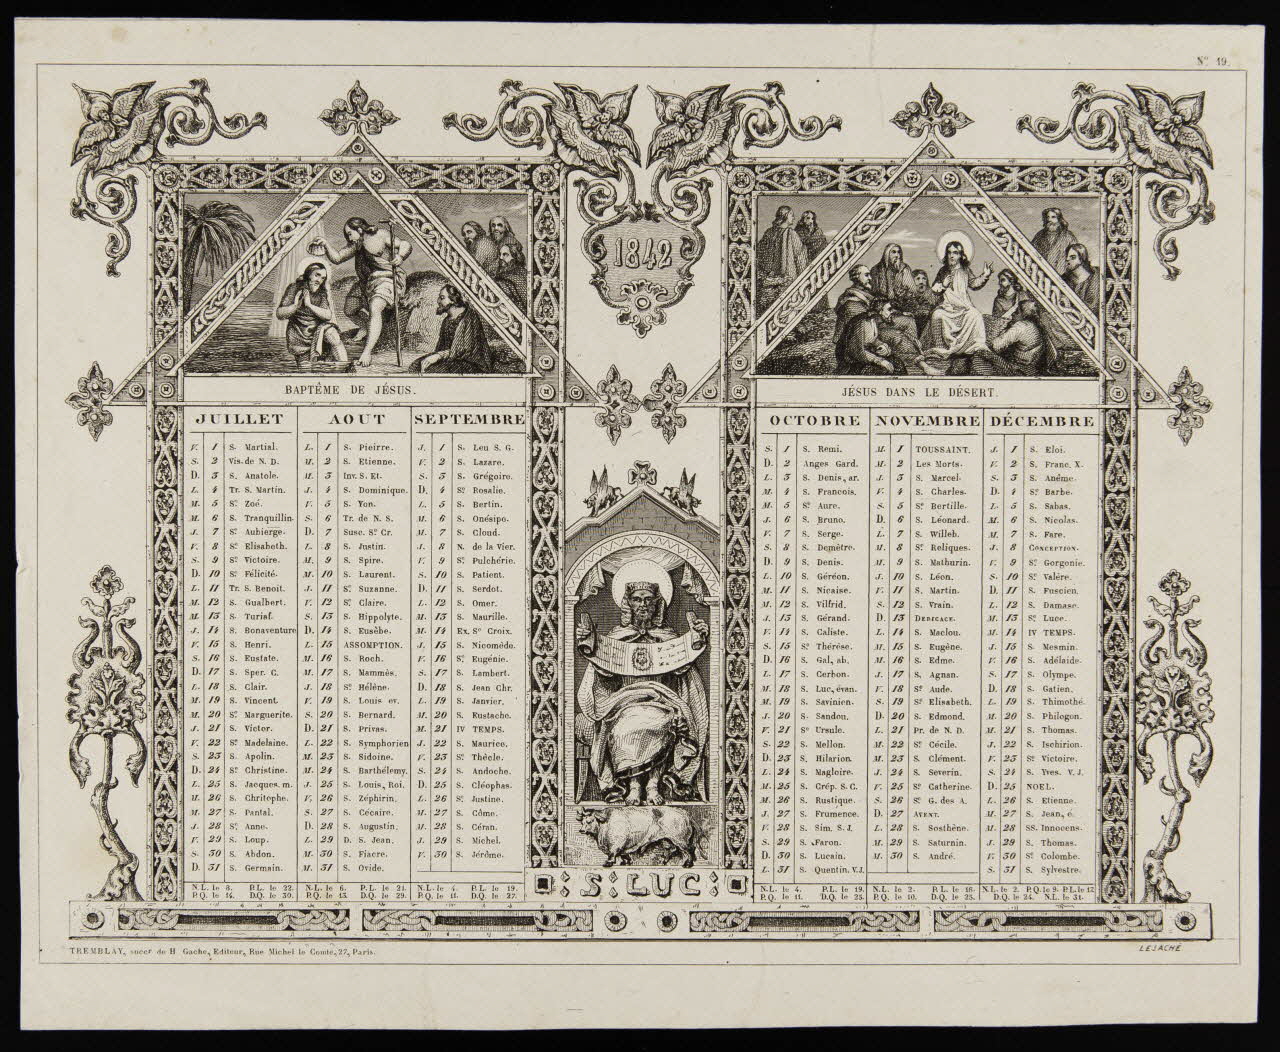 No. 19.
1842
BAPTÊME DE JÉSUS.
JUILLET
V. 1 S. Martial.
S. 2 Vis. de N. D.
D. 3 S. Anatole.
L. 4 Tr. S. Martin.
M. 5 Se. Zoé.
M. 6 S. Tranquillin.
J. 7 Se. Aubierge.
V. 8 Se. Elisabeth.
S. 9 Se. Victoire.
D. 10 Se. Félicité.
L. 11 Tr. S. Benoit.
M. 12 S. Gualbert.
M. 13 S. Turiaf.
J. 14 S. Bonaventure
V. 15 S. Henri.
S. 16 S. Eustate.
D. 17 S. Sper. C.
L. 18 S. Clair.
M. 19 S. Vincent.
M. 20 Se. Marguerite.
J. 21 S. Victor.
V. 22 Se. Madelaine.
S. 23 S. Apolin.
D. 24 Se. Christine.
L. 25 S. Jacques. m.
M. 26 S. Chritophe.
M. 27 S. Pantal.
J. 28 Se. Anne.
V. 29 S. Loup.
S. 30 S. Abdon.
D. 31 S. Germain.
N.L. le 8. P.L. le 22.
P.Q. le 14. D.Q. le 30.
AOUT
L. 1 S. Pieirre.
M. 2 S. Etienne.
M. 3 Inv. S. Et.
J. 4 S. Dominique.
V. 5 S. Yon.
S. 6 Tr. de N. S.
D. 7 Susc. Se. Cr.
L. 8 S. Justin.
M. 9 S. Spire.
M. 10 S. Laurent.
J. 11 Se. Suzanne.
V. 12 Se. Claire.
S. 13 S. Hippolyte.
D. 14 S. Eusèbe.
L. 15 ASSOMPTION.
M. 16 S. Roch.
M. 17 S. Mammès.
J. 18 Se. Hélène.
V. 19 S. Louis ev.
S. 20 S. Bernard.
D. 21 S. Privas.
L. 22 S. Symphorien
M. 23 S. Sidoine.
M. 24 S. Barthélemy.
J. 25 S. Louis, Roi.
V. 26 S. Zéphirin.
S. 27 S. Cécaire.
D. 28 S. Augustin.
L. 29 D. S. Jean.
M. 30 S. Fiacre.
M. 31 S. Ovide.
N.L. le 6. P.L. le 21.
P.Q. le 13. D.Q. le 29.
SEPTEMBRE
J. 1 S. Leu S. G.
V. 2 S. Lazare.
S. 3 S. Grégoire.
D. 4 Se. Rosalie.
L. 5 S. Bertin.
M. 6 S. Onésipo.
M. 7 S. Cloud.
J. 8 N. de la Vier.
V. 9 Se. Pulchérie.
S. 10 S. Patient.
D. 11 S. Serdot.
L. 12 S. Omer.
M. 13 S. Maurille.
M. 14 Ex. Se. Croix.
J. 15 S. Nicomède.
V. 16 Se. Eugénie.
S. 17 S. Lambert.
D. 18 S. Jean Chr.
L. 19 S. Janvier.
M. 20 S. Eustache.
M. 21 IV TEMPS.
J. 22 S. Maurice.
V. 23 Se. Thècle.
S. 24 S. Andoche.
D. 25 S. Cléophas.
L. 26 Se. Justine.
M. 27 S. Côme.
M. 28 S. Céran.
J. 29 S. Michel.
V. 30 S. Jérôme.
N.L. le 4. P.L. le 19.
P.Q. le 11. D.Q. le 27.
S: LUC:
JÉSUS DANS LE DÉSERT.
OCTOBRE
S. 1 S. Remi.
D. 2 Anges Gard.
L. 3 S. Denis, ar.
M. 4 S. Francois.
M. 5 Se. Aure.
J. 6 S. Bruno.
V. 7 S. Serge.
S. 8 S. Demètre.
D. 9 S. Denis.
L. 10 S. Géréon.
M. 11 S. Nicaise.
M. 12 S. Vilfrid.
J. 13 S. Gérand.
V. 14 S. Caliste.
S. 15 Se. Thérèse.
D. 16 S. Gal, ab.
L. 17 S. Cerbon.
M. 18 S. Luc, évan.
M. 19 S. Savinien.
J. 20 S. Sandou.
V. 21 Se Ursule.
S. 22 S. Mellon.
D. 23 S. Hilarion.
L. 24 S. Magloire.
M. 25 S. Crép. S. C.
M. 26 S. Rustique.
J. 27 S. Frumence.
V. 28 S. Sim. S. J.
S. 29 S. Faron.
D. 30 S. Lucain.
L. 31 S. Quentin. V.J.
N.L. le 4. P.L. le 19.
P.Q. le 11. D.Q. le 25.
NOVEMBRE
M. 1 TOUSSAINT.
M. 2 Les Morts.
J. 3 S. Marcel.
V. 4 S. Charles.
S. 5 Se. Bertille.
D. 6 S. Léonard.
L. 7 S. Willeb.
M. 8 Se. Reliques.
M. 9 S. Mathurin.
J. 10 S. Léon.
V. 11 S. Martin.
S. 12 S. Vrain.
D. 13 DEDICACE.
L. 14 S. Maclou.
M. 15 S. Eugène.
M. 16 S. Edme.
J. 17 S. Agnan.
V. 18 Se. Aude.
S. 19 Se. Elisabeth.
D. 20 S. Edmond.
L. 21 Pr. de N. D.
M. 22 Se. Cécile.
M. 23 S. Clément.
J. 24 S. Severin.
V. 25 Se. Catherine.
S. 26 Se. G. des A.
D. 27 AVENT.
L. 28 S. Sosthène.
M. 29 S. Saturnin.
M. 30 S. André.
N.L. le 2. P.L. le 18.
P.Q. le 10. D.Q. le 25.
DÉCEMBRE
J. 1 S. Eloi.
V. 2 S. Franc. X.
S. 3 S. Anême.
D. 4 Se. Barbe.
L. 5 S. Sabas.
M. 6 S. Nicolas.
M. 7 S. Fare.
J. 8 CONCEPTION.
V. 9 Se. Gorgonie.
S. 10 Se. Valère.
D. 11 S. Fuscien.
L. 12 S. Damase.
M. 13 Se. Luce.
M. 14 IV TEMPS.
J. 15 S. Mesmin.
V. 16 S. Adélaide.
S. 17 S. Olympe.
D. 18 S. Gatien.
L. 19 S. Thimothé.
M. 20 S. Philogon.
M. 21 S. Thomas.
J. 22 S. Ischirion.
V. 23 Se. Victoire.
S. 24 S. Yves. V. J.
D. 25 NOEL.
L. 26 S. Etienne.
M. 27 S. Jean, é.
M. 28 SS. Innocens.
J. 29 S. Thomas.
V. 30 Se. Colombe.
S. 31 S. Sylvestre.
N.L. le 2. P.Q. le 9. P.L. le 17
D.Q. le 24. N.L. le 31.
TREMBLAY, succr de H Gache, Editeur, Rue Michel le Comte, 27, Paris.
LEJACHÉ